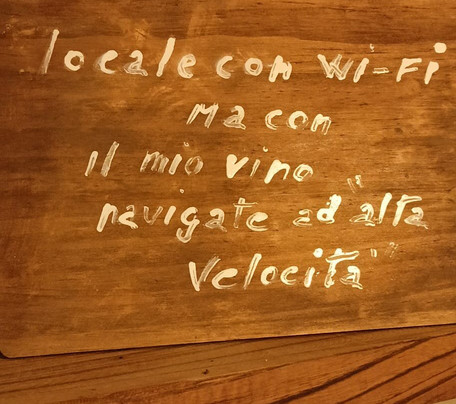 locale con Wi-Fi
Ma con
il mio vino
navigate ad "alta
Velocità"